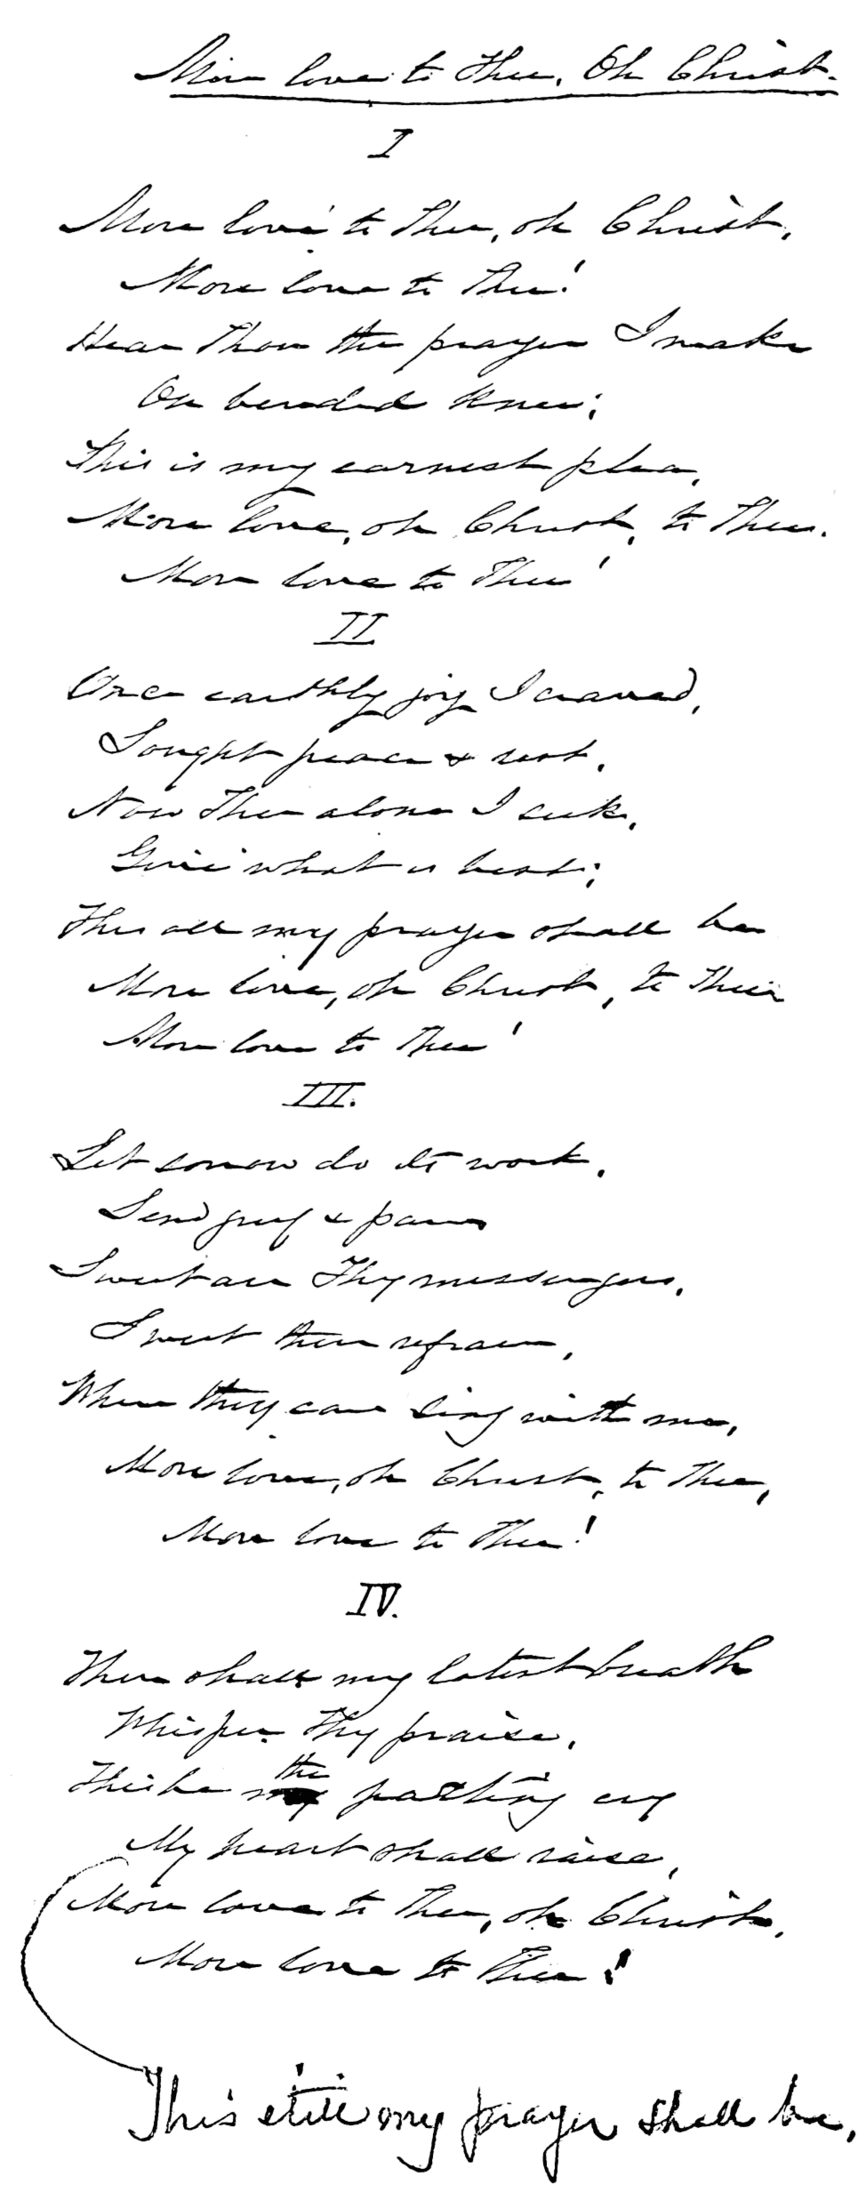 More love to Thee, Oh Christ.
I
More love to Thee, oh Christ,
More love to Thee!
Hear Thou the prayer I make
On bended knee;
This is my earnest plea,
More love, oh Christ, to Thee.
More love to Thee!
II
Once earthly joy I craved,
Sought peace & rest,
Now Thee alone I seek,
Give what is best;
This all my prayer shall be
More love, oh Christ, to Thee
More love to Thee!
III.
Let sorrow do its work,
Send grief & pain
Sweet are Thy messengers,
Sweet their refrain,
When they can sing with me,
More love, oh Christ, to Thee,
More love to Thee!
IV.
Then shall my latest breath
Whisper Thy praise,
This be the parting cry
My heart shall raise,
More love to Thee, oh Christ,
More love to Thee!
This still my prayer shall be,